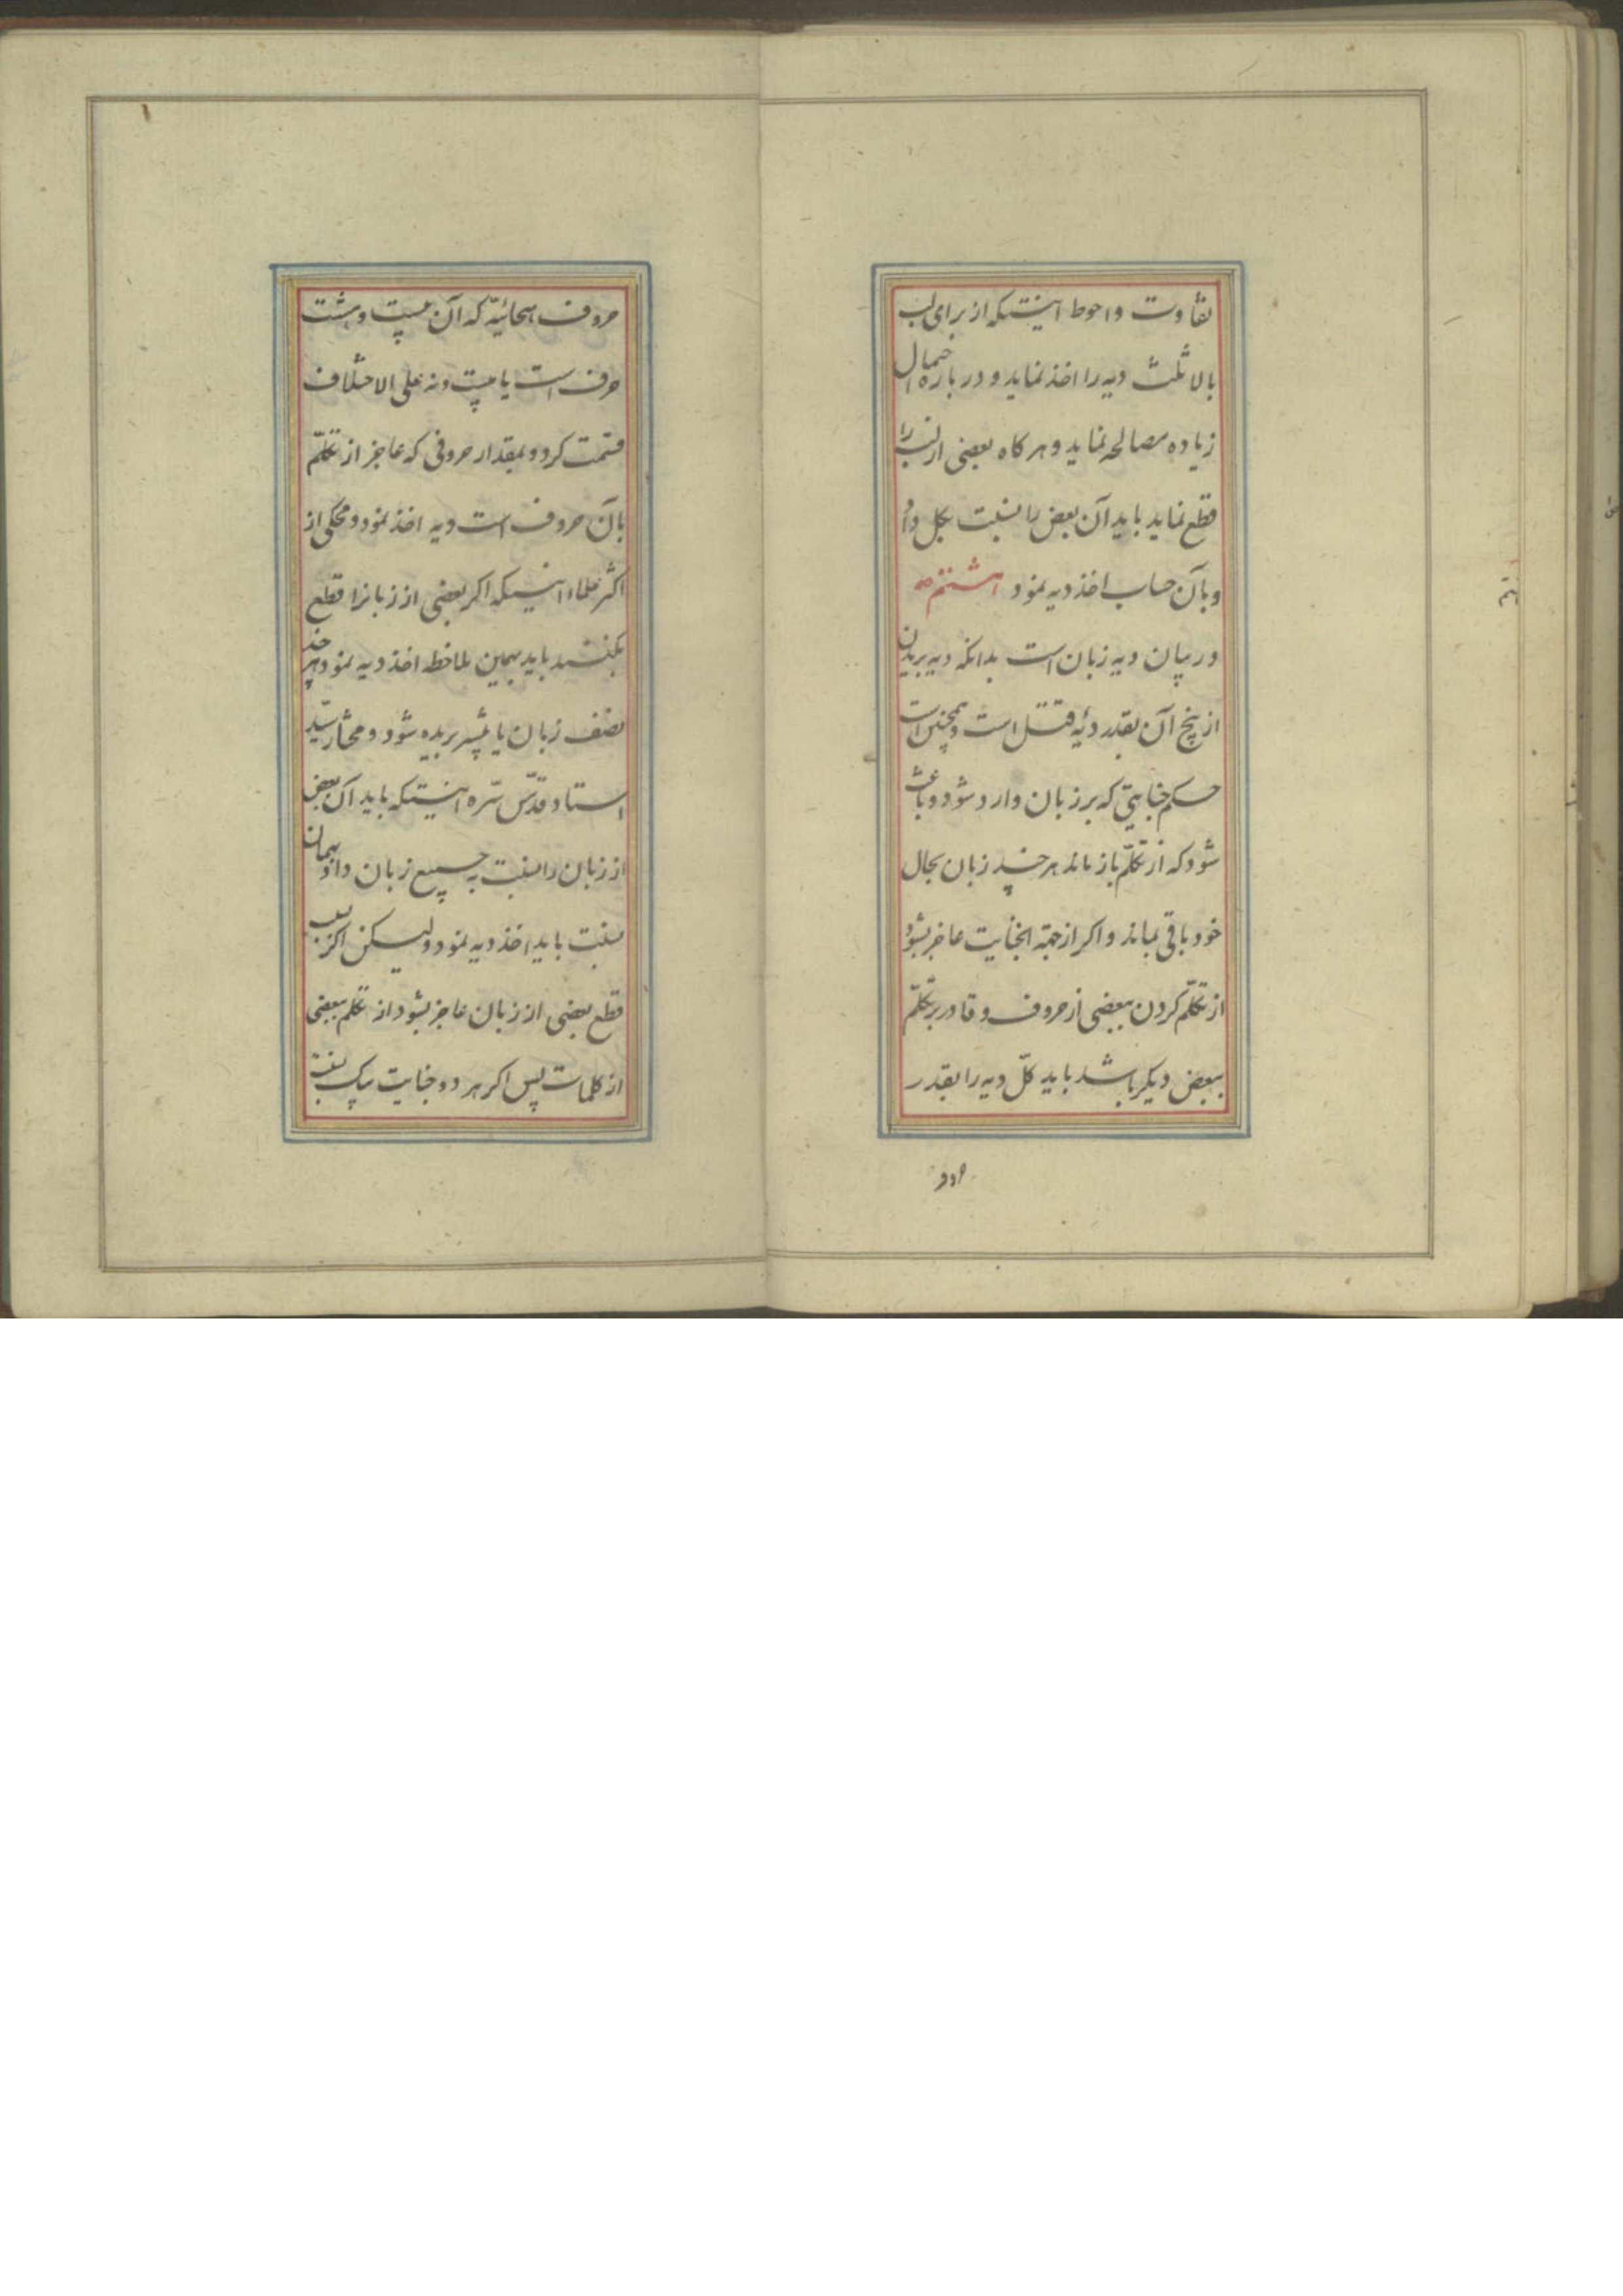 تفاوت و احوط اینستکه از برای لب
بالا ثلث دیه را اخذ نماید و در باره احتمال
زیاده مصالحه نماید و هر کاه بعضی از لب را
قطع نماید باید آن بعض را نسبت بکل داد
و بآن حساب اخذ دیه نمود هشتم
در بیان دیه زبان است بدانکه دیه بریدن
از بیخ آن بقدر دیۀ قتل است و همچنین است
حکم جنایتی که بر زبان وارد شود و باعث
شود که از تکلّم باز ماند هر چند زبان بحال
خود باقی بماند و اکر از جهة انجنایت عاجز بشود
از تکلّم کردن ببعضی از حروف و قادر بر تکلّم
ببعض دیکر باشد باید کلّ دیه را بقدر
حروف هجائیّه که آن بیست و هشت
حرف است یا بیست و نه علی الاختلاف
قسمت کرد و بمقدار حروفی که عاجز از تکلّم
بآن حروف است دیه اخذ نمود و محکی از
اکثر علماء اینستکه اکر بعضی از زبانرا قطع
بکنند باید بهمین ملاحظه اخذ دیه نمود هر چند
نصف زبان یا بیشتر بریده شود و مختار سیّد
استاد قدّس سّره اینستکه باید آن بعض
از زبان را نسبت به جمیع زبان داد و بهمان
نسبت باید اخذ دیه نمود و لیکن اکر بسبب
قطع بعضی از زبان عاجز بشود از تکلم ببعضی
از کلمات پس اکر هر دو جنایت بیک نسبت